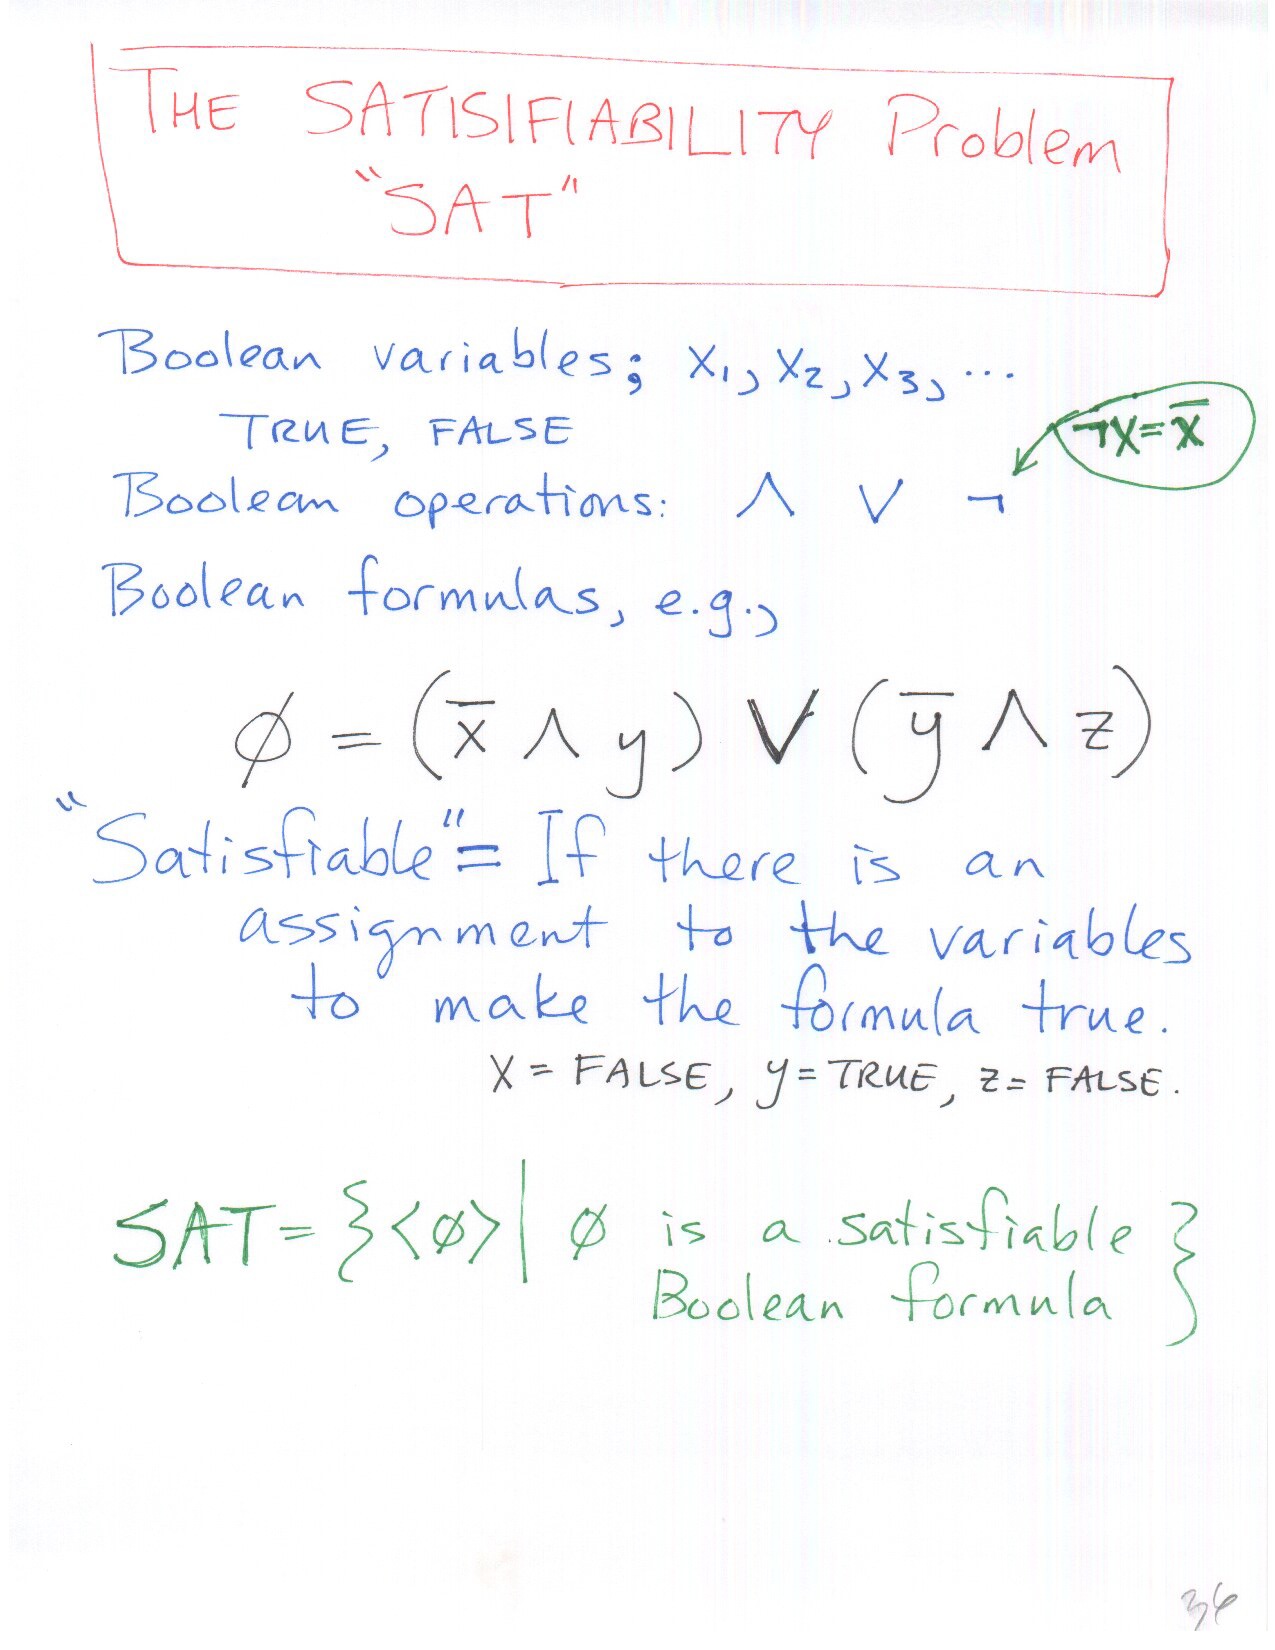 THE SATISIFIABILITY Problem
"SAT"
Boolean variables; x₁, x₂, x₃, ...
TRUE, FALSE
¬x = x̅
Boolean operations: ∧ ∨ ¬
Boolean formulas, e.g.,
∅ = (x̅ ∧ y) ∨ (y̅ ∧ z)
"Satisfiable" = If there is an
assignment to the variables
to make the formula true.
x = FALSE, y = TRUE, z = FALSE.
SAT = {<∅> | ∅ is a satisfiable
Boolean formula }
36